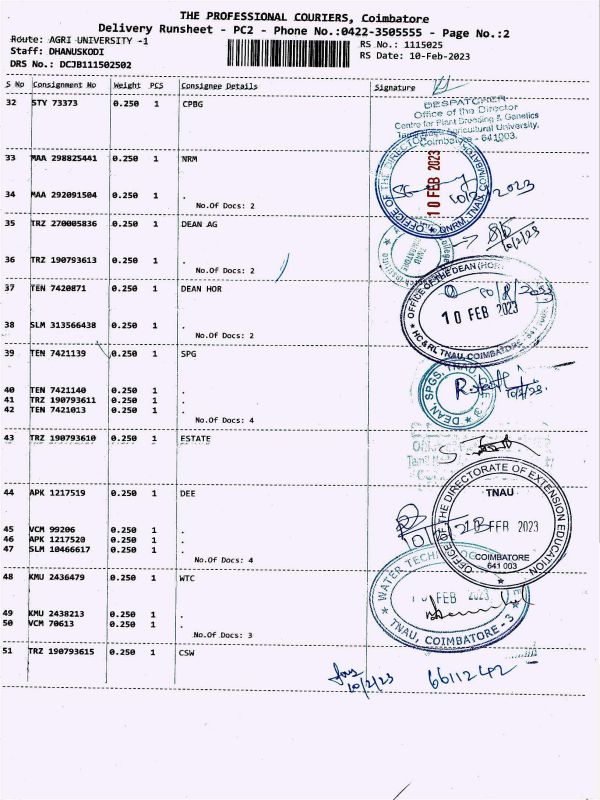 THE PROFESSIONAL COURIERS, Coimbatore
Delivery Runsheet - PC2 - Phone No.:0422-3505555 - Page No.:2
Route: AGRI UNIVERSITY -1
RS No.: 1115025
Staff: DHANUSKODI
RS Date: 10-Feb-2023
DRS No.: DCJB111502502
S No Consignment No Weight PCS Consignee Details Signature
32 STY 73373 0.250 1 CPBG
DESPATCHER
Office of the Director
Centre for Plant Breeding & Genetics
Tamil Nadu Agricultural University,
Coimbatore - 641003.
33 MAA 298825441 0.250 1 NRM
OFFICE OF THE DIRECTOR
10 FEB 2023
DNRM, TNAU, COIMBATORE
34 MAA 292091504 0.250 1 .
No.Of Docs: 2
10/2/2023
35 TRZ 270005836 0.250 1 DEAN AG
10/2/23
36 TRZ 190793613 0.250 1 .
No.Of Docs: 2
37 TEN 7420871 0.250 1 DEAN HOR
OFFICE OF THE DEAN (HOR)
10 FEB 2023
HC & RI, TNAU, COIMBATORE - 641 003
38 SLM 313566438 0.250 1 .
No.Of Docs: 2
39 TEN 7421139 0.250 1 SPG
DEAN, SPGS, TNAU
10/2/23.
40 TEN 7421140 0.250 1 .
41 TRZ 190793611 0.250 1 .
42 TEN 7421013 0.250 1 .
No.Of Docs: 4
43 TRZ 190793610 0.250 1 ESTATE
44 APK 1217519 0.250 1 DEE
OFFICE OF THE DIRECTORATE OF EXTENSION EDUCATION
TNAU
FEB 2023
COIMBATORE
641 003
45 VCM 99206 0.250 1 .
46 APK 1217520 0.250 1 .
47 SLM 10466617 0.250 1 .
No.Of Docs: 4
48 KMU 2436479 0.250 1 WTC
WATER TECHNOLOGY
FEB 2023
TNAU, COIMBATORE - 3
49 KMU 2438213 0.250 1 .
50 VCM 70613 0.250 1 .
No.Of Docs: 3
51 TRZ 190793615 0.250 1 CSW
10/2/23
6611242